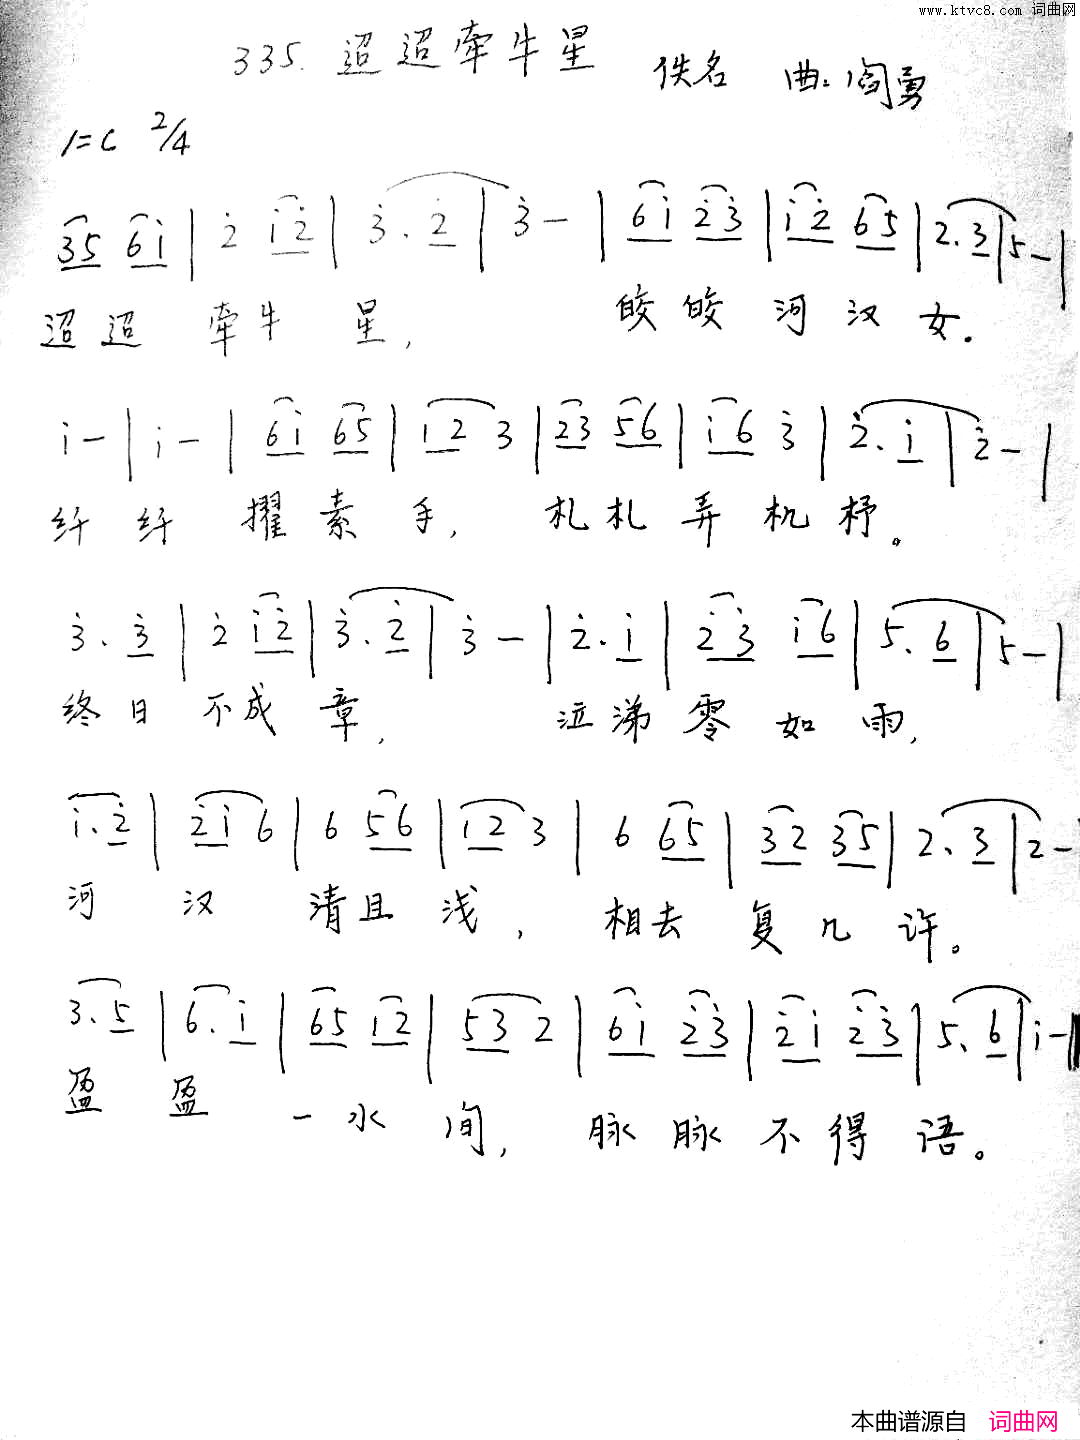 www.ktvc8.com 词曲网
335. 迢迢牵牛星 佚名 曲:阎勇
1=C 2/4
35 6i | 2̇ i2̇ | 3̇. 2̇ | 3̇ - | 6i 2̇3̇ | i2̇ 65 | 2.3 | 5 - |
迢迢 牵牛 星, 皎皎 河汉 女.
i - | i - | 6i 65 | i2 3 | 23 56 | i6 3̇ | 2̇. i | 2̇ - |
纤 纤 擢 素 手, 札札 弄 机 杼。
3̇. 3̇ | 2̇ i2̇ | 3̇. 2̇ | 3̇ - | 2̇. i | 2̇3̇ i6 | 5. 6 | 5 - |
终日 不成 章, 泣涕 零 如 雨,
i. 2̇ | 2̇i 6 | 6 56 | i2 3 | 6 65 | 32 35 | 2. 3 | 2 -
河 汉 清且 浅, 相去 复 几 许。
3. 5 | 6. i | 65 i2 | 53 2 | 6i 2̇3̇ | 2̇i 2̇3̇ | 5. 6 | i - ‖
盈 盈 一 水 间, 脉 脉 不 得 语。
本曲谱源自 词曲网